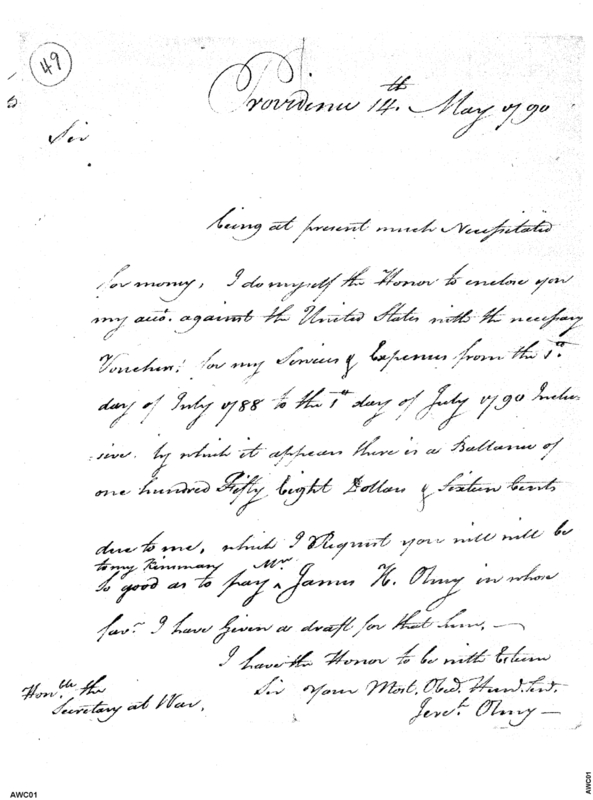 49
Providence 14th. May 1790
Sir
being at present much Necessitated
for money, I do myself the Honor to enclose you
my acco. against the United States with the necessary
Vouchers: for my Services & Expences from the 1st.
day of July 1788 to the 1st day of July 1790 Inclu-
sive. by which it appears there is a Ballance of
one hundred Fifty Eight Dollars & Sixteen Cents
due to me, which I Request you will will be
to my kinsman Mr.
so good as to pay ^ James H. Olny in whose
favr. I have Given a draft for that Sum. —
I have the Honor to be with Esteem
Sir your Most. Obed. Hum. Svt.
Jerh. Olny —
Honble the
Secretary at War.
AWC01
AWC01